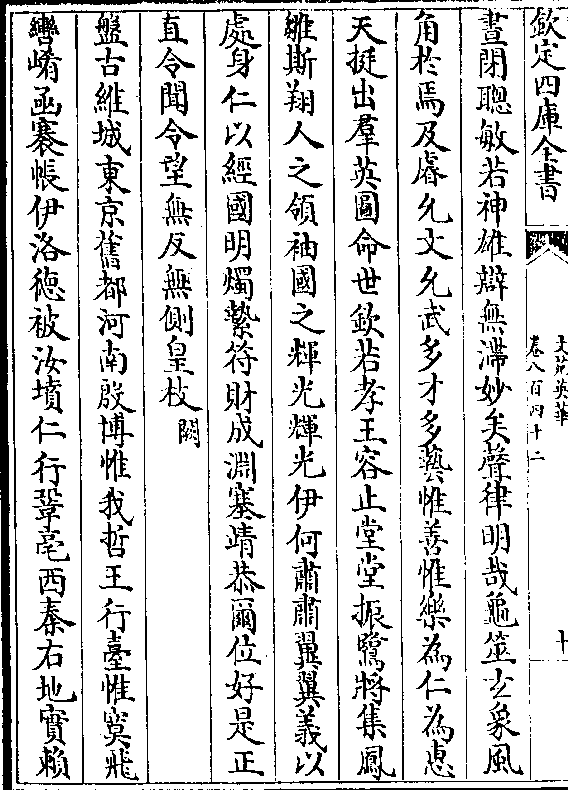 欽定四庫全書
文苑英華
卷八百四十二
十
晝閉聰敏若神雄辯無滯妙矣聲律明哉龜筮玄象風
角於焉及睿允文允武多才多藝惟善惟樂為仁為惠
天挺出羣英圖命世欽若孝王容止堂堂振鷺將集鳳
雛斯翔人之領袖國之輝光輝光伊何肅肅翼翼義以
處身仁以經國明燭縶符財成淵塞靖恭爾位好是正
直令聞令望無反無側皇枝闕
盤古維城東京舊都河南殷博惟我哲王行臺惟寞飛
轡崤函褰帳伊洛德被汝墳仁行鞏亳西秦右地實賴